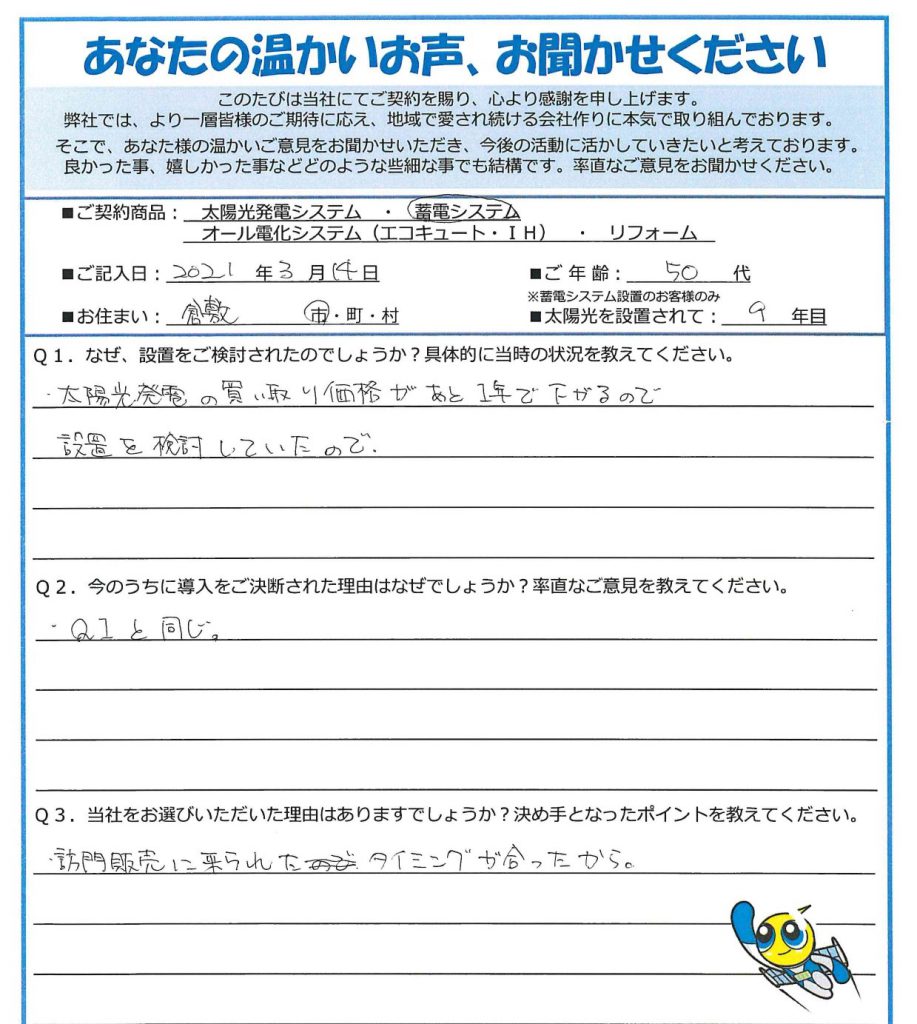 あなたの温かいお声、お聞かせください
このたびは当社にてご契約を賜り、心より感謝を申し上げます。
弊社では、より一層皆様のご期待に応え、地域で愛され続ける会社作りに本気で取り組んでおります。
そこで、あなた様の温かいご意見をお聞かせいただき、今後の活動に活かしていきたいと考えております。
良かった事、嬉しかった事などどのような些細な事でも結構です。率直なご意見をお聞かせください。
■ご契約商品： 太陽光発電システム ・ 蓄電システム
オール電化システム（エコキュート・ＩＨ） ・ リフォーム
■ご記入日： 2021 年 3 月 14 日 ■ご年齢： 50 代
※蓄電システム設置のお客様のみ
■お住まい： 倉敷 市・町・村 ■太陽光を設置されて： 9 年目
Ｑ１．なぜ、設置をご検討されたのでしょうか？具体的に当時の状況を教えてください。
・太陽光発電の買い取り価格があと1年で下がるので
設置を検討していたので.
Ｑ２．今のうちに導入をご決断された理由はなぜでしょうか？率直なご意見を教えてください。
・Q1と同じ。
Ｑ３．当社をお選びいただいた理由はありますでしょうか？決め手となったポイントを教えてください。
・訪問販売に来られたので タイミングが合ったから。